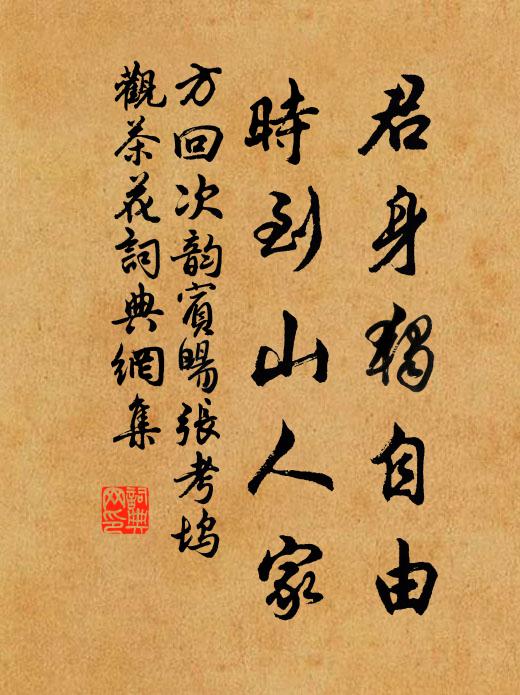 君身獨自由
時到山人家
方回次韵賓暘張考塢
觀茶花詞典網集
詞典
网印